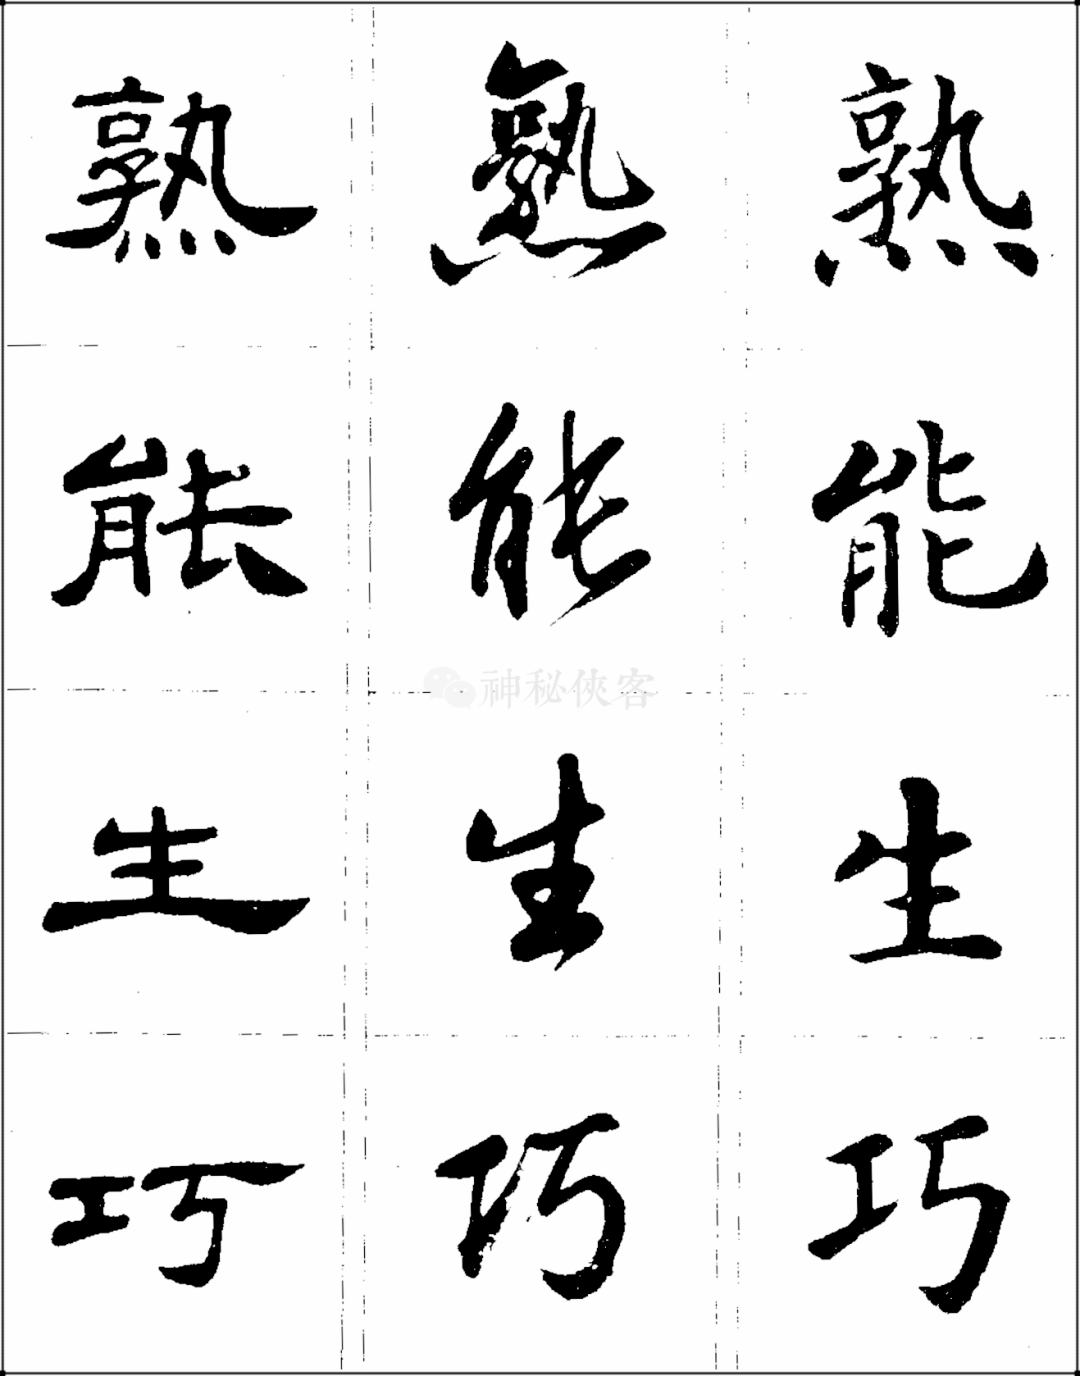 熟 熟 熟
能 能 能
神秘俠客
生 生 生
巧 巧 巧